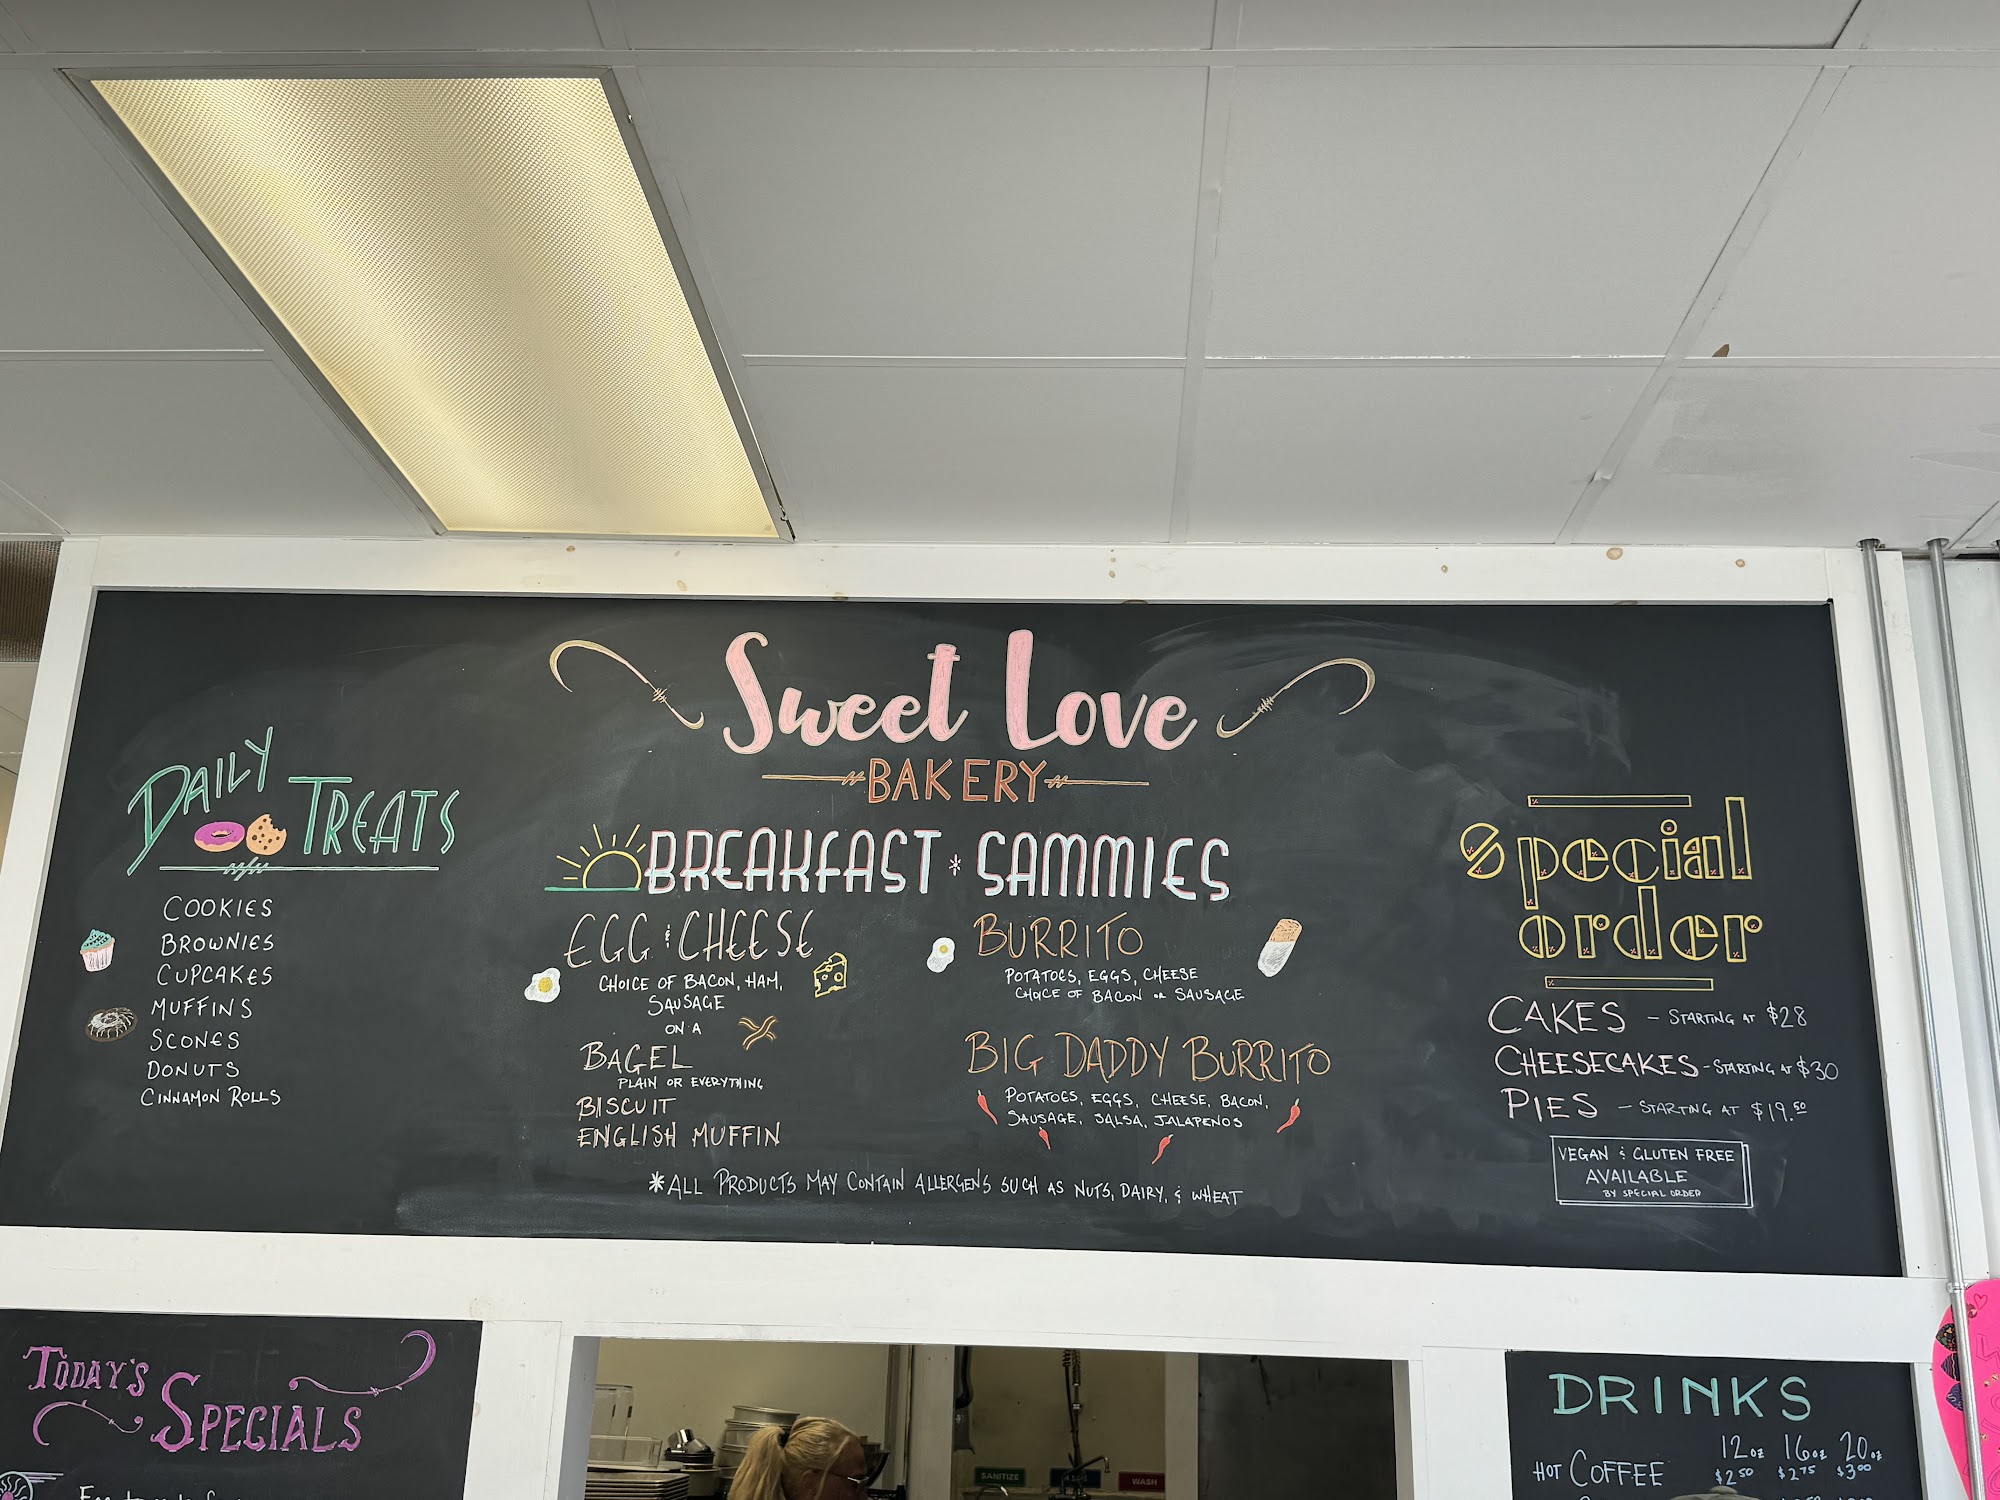 Sweet Love
BAKERY
DAILY TREATS
COOKIES
BROWNIES
CUPCAKES
MUFFINS
SCONES
DONUTS
CINNAMON ROLLS
BREAKFAST * SAMMIES
EGG & CHEESE
CHOICE OF BACON, HAM,
SAUSAGE
ON A
BAGEL
PLAIN OR EVERYTHING
BISCUIT
ENGLISH MUFFIN
BURRITO
POTATOES, EGGS, CHEESE
CHOICE OF BACON OR SAUSAGE
BIG DADDY BURRITO
POTATOES, EGGS, CHEESE, BACON,
SAUSAGE, SALSA, JALAPENOS
*ALL PRODUCTS MAY CONTAIN ALLERGENS SUCH AS NUTS, DAIRY, & WHEAT
special
order
CAKES - STARTING AT $28
CHEESECAKES - STARTING AT $30
PIES - STARTING AT $19.50
VEGAN & GLUTEN FREE
AVAILABLE
BY SPECIAL ORDER
TODAY'S
SPECIALS
SANITIZE
WASH
DRINKS
12oz 16oz 20oz
HOT COFFEE $2.50 $2.75 $3.00